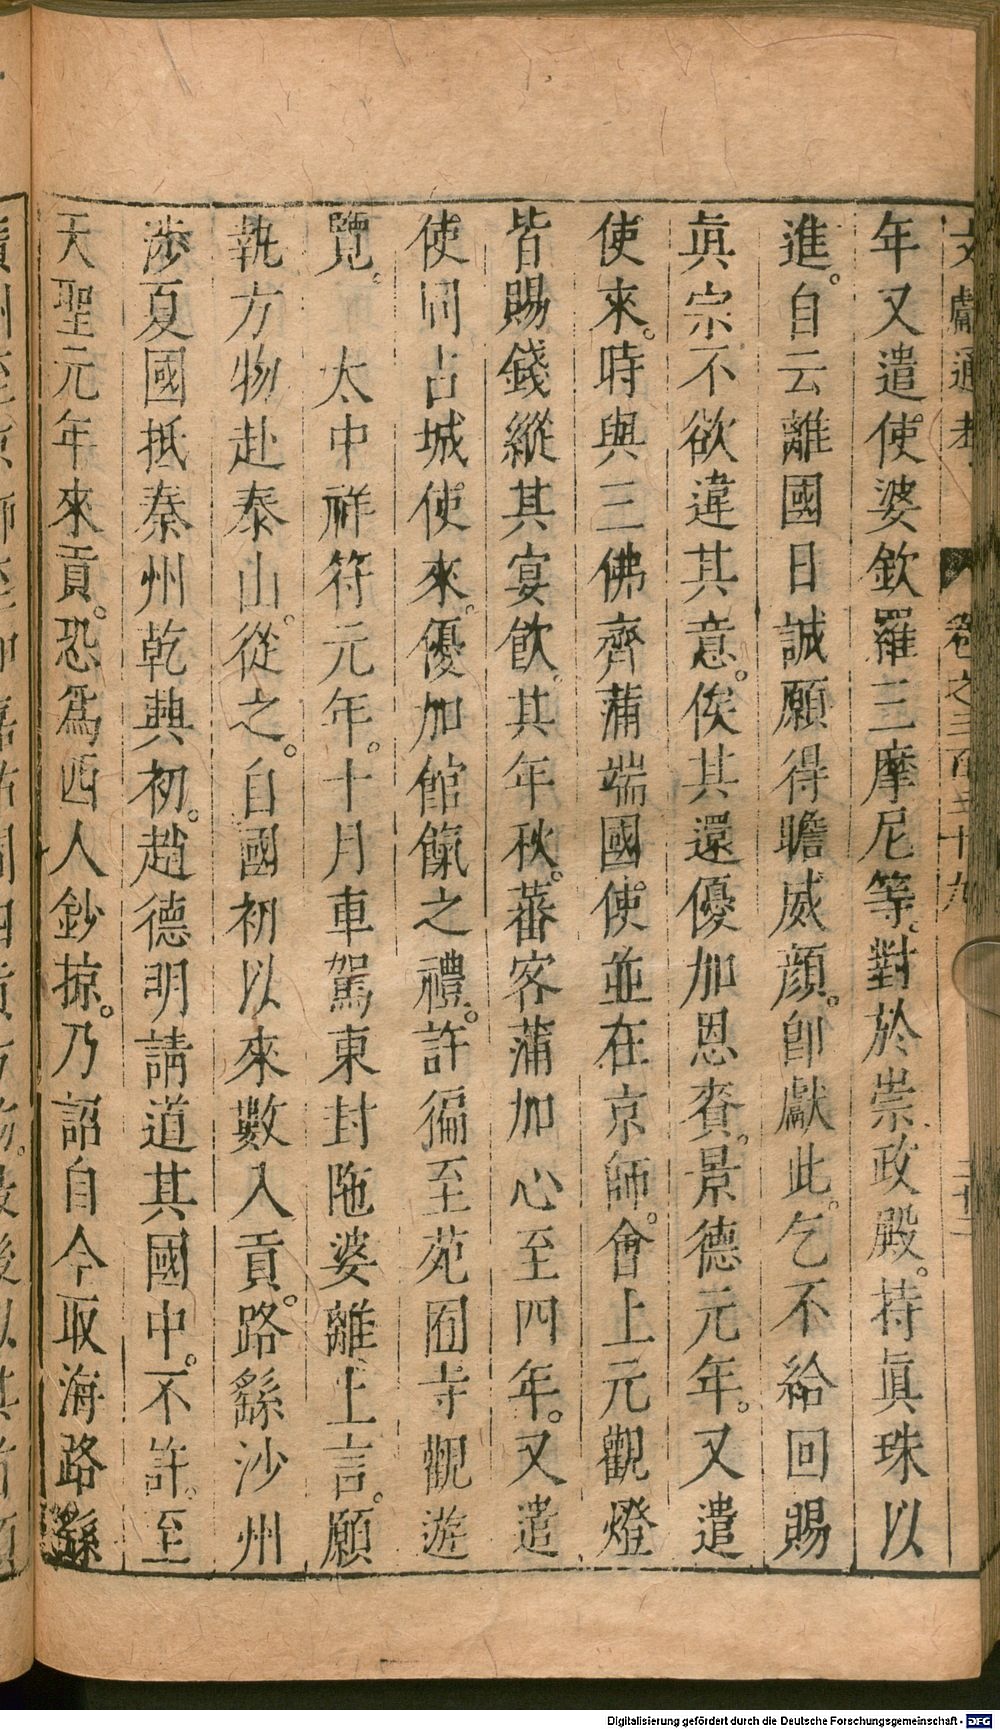 文獻通考 卷之三百三十九
年又遣使婆欽羅三摩尼等。對於崇政殿。持眞珠以
進。自云離國日誠願得瞻威顏。卽獻此。乞不給回賜
眞宗不欲違其意。俟其還優加恩賚。景德元年。又遣
使來。時與三佛齊蒲端國使並在京師。會上元觀燈
皆賜錢縱其宴飲。其年秋。蕃客蒲加心至四年。又遣
使同占城使來。優加館餼之禮。許徧至苑囿寺觀遊
覽。太中祥符元年。十月車駕東封陁婆離上言。願
執方物赴泰山。從之。自國初以來數入貢。路繇沙州
涉夏國抵秦州乾興初。趙德明請道其國中。不許。至
天聖元年來貢。恐爲西人鈔掠。乃詔自今取海路繇
Digitalisierung gefördert durch die Deutsche Forschungsgemeinschaft - DFG